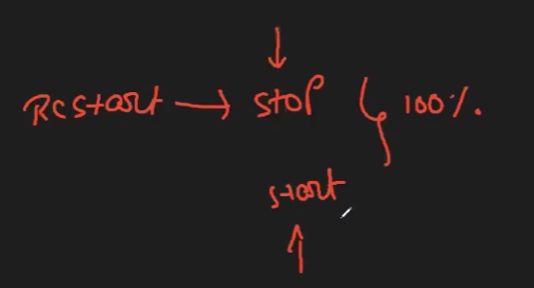 Restart → stop 100%.
start